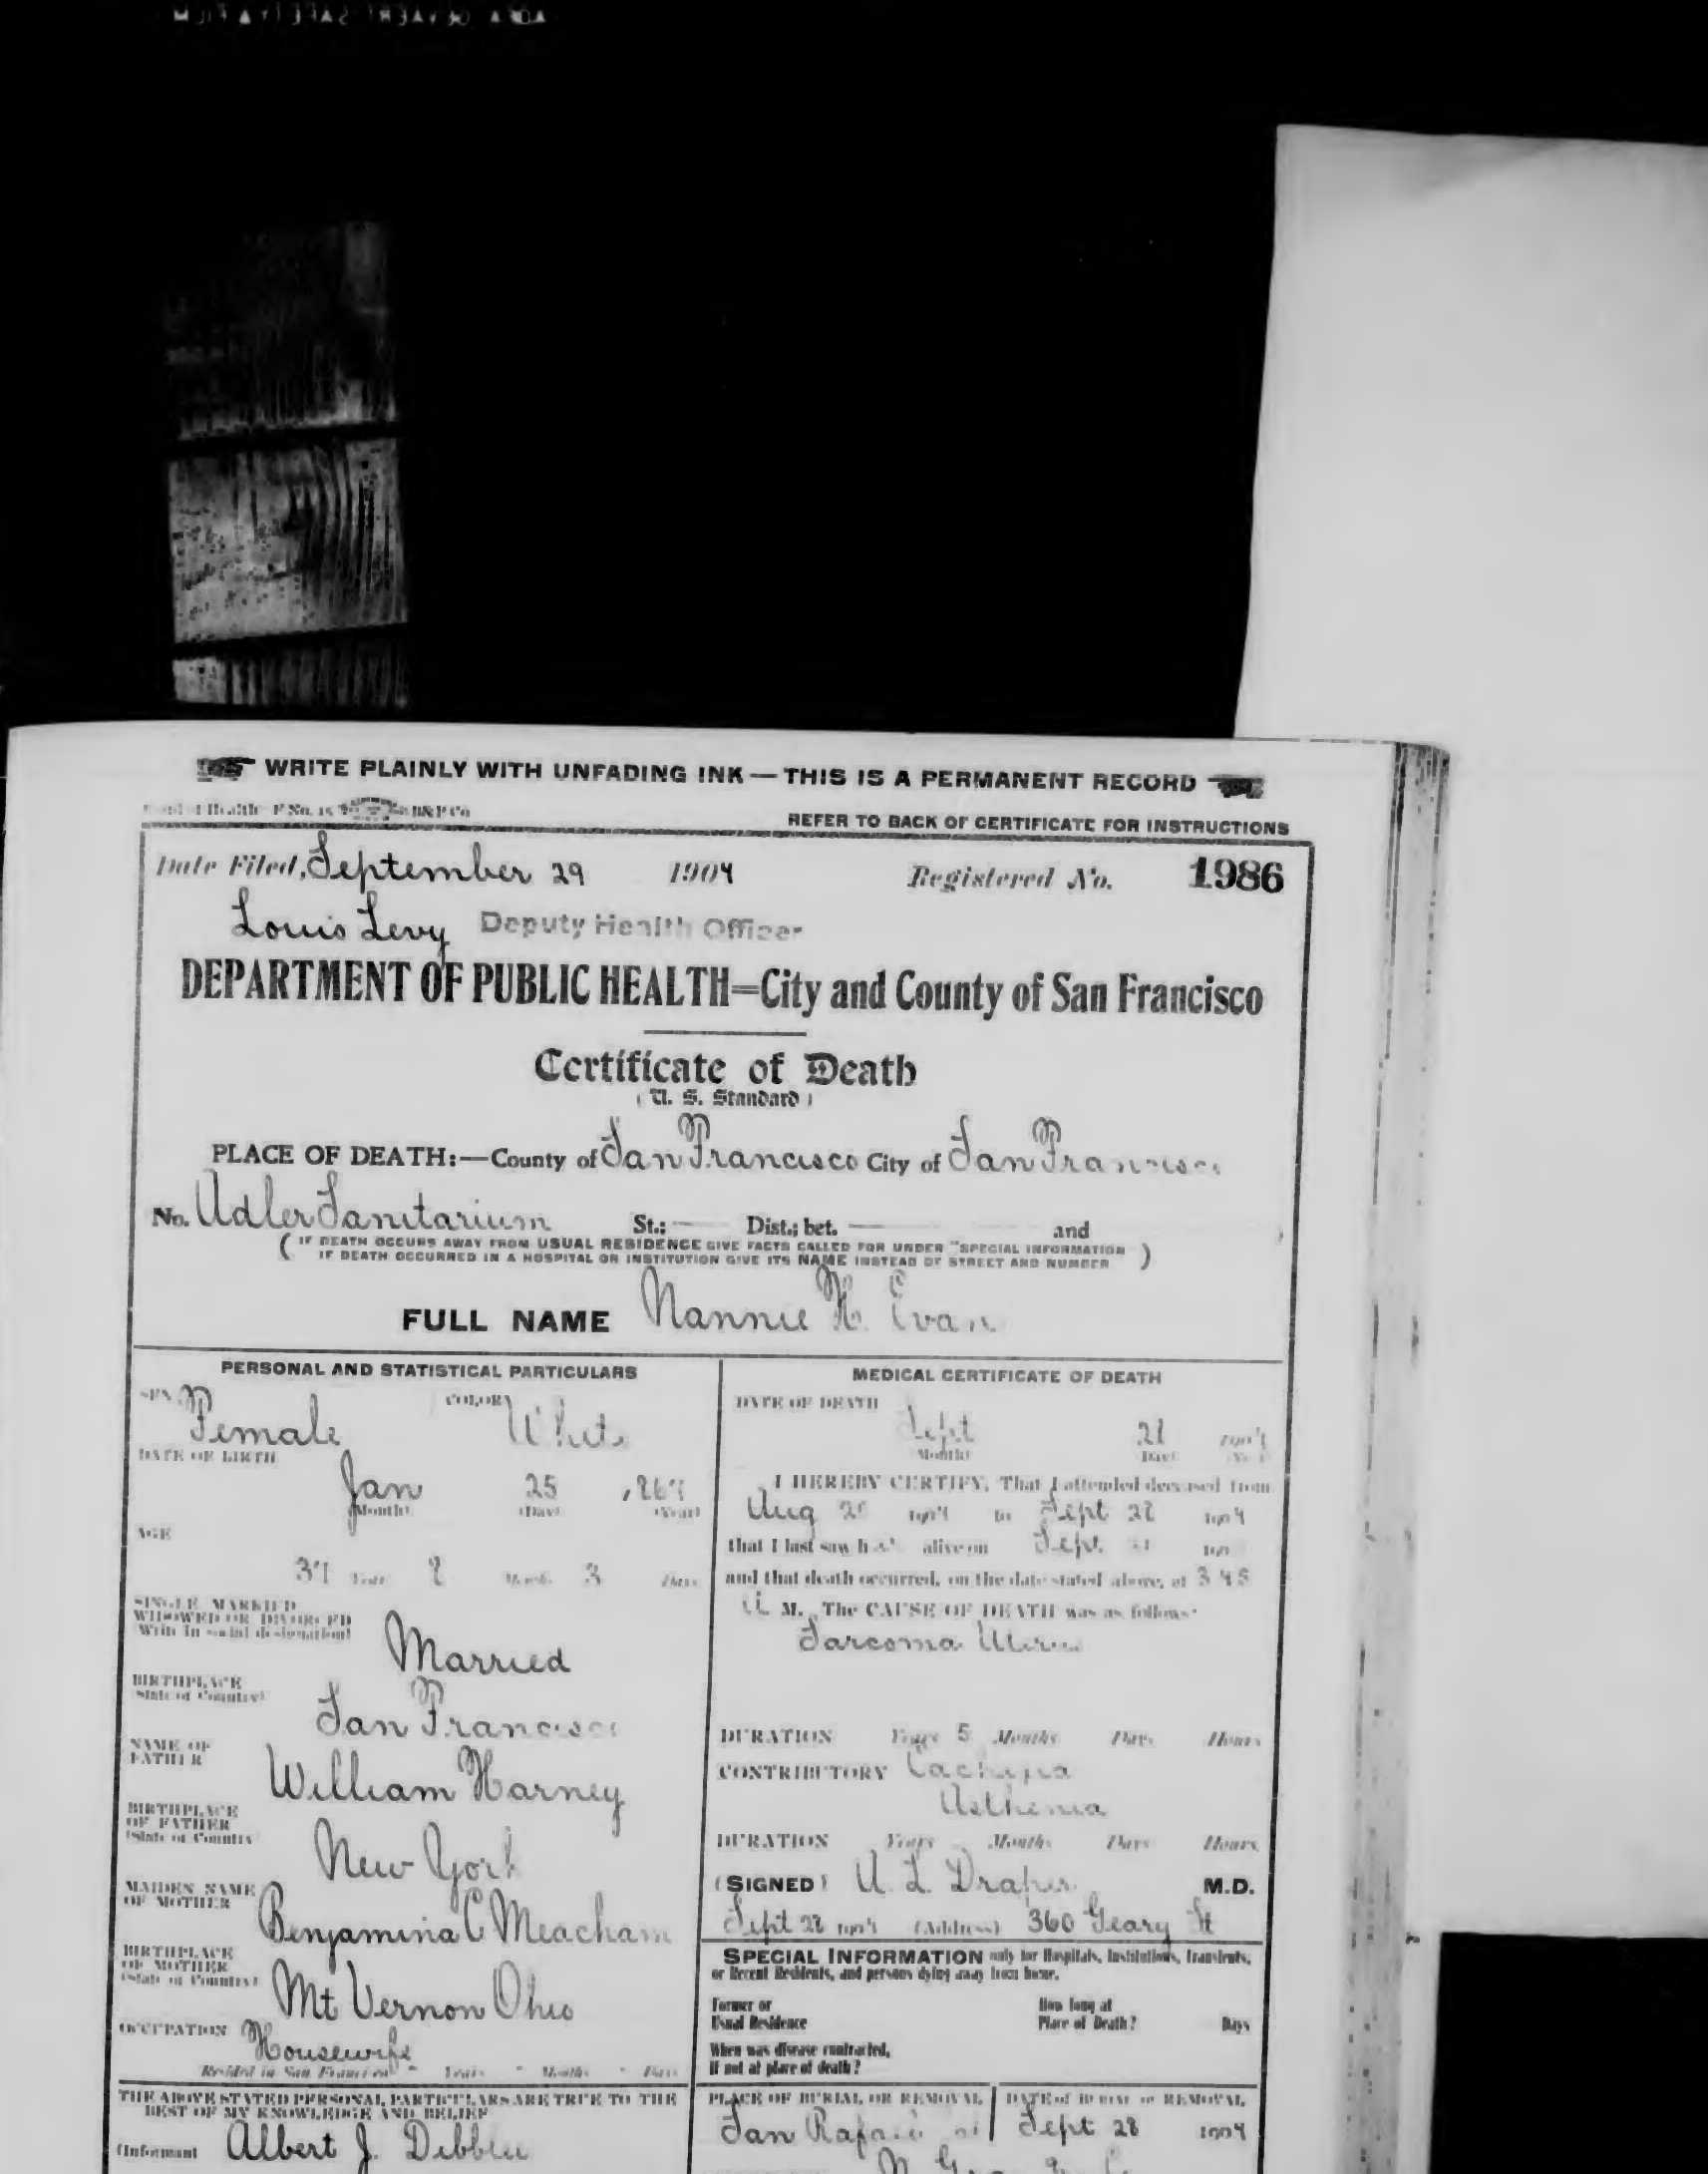 WRITE PLAINLY WITH UNFADING INK — THIS IS A PERMANENT RECORD
REFER TO BACK OF CERTIFICATE FOR INSTRUCTIONS
Date Filed, September 29 1904 Registered No. 1986
Louis Levy Deputy Health Officer
DEPARTMENT OF PUBLIC HEALTH=City and County of San Francisco
Certificate of Death
(U. S. Standard)
PLACE OF DEATH:—County of San Francisco City of San Francisco
No. Adler Sanitarium St.; — Dist.; bet. — and
(IF DEATH OCCURS AWAY FROM USUAL RESIDENCE GIVE FACTS CALLED FOR UNDER "SPECIAL INFORMATION
IF DEATH OCCURRED IN A HOSPITAL OR INSTITUTION GIVE ITS NAME INSTEAD OF STREET AND NUMBER)
FULL NAME Nannie H. Evan
PERSONAL AND STATISTICAL PARTICULARS
SEX Female COLOR White
DATE OF BIRTH
Jan 25
(Month) (Day) (Year)
AGE
Years Months 3 Days
SINGLE MARRIED
WIDOWED OR DIVORCED
(Write in social designation)
Married
BIRTHPLACE
(State or Country)
San Francisco
NAME OF
FATHER
William Harney
BIRTHPLACE
OF FATHER
(State or Country)
New York
MAIDEN NAME
OF MOTHER
Benjamina C Meacham
BIRTHPLACE
OF MOTHER
(State or Country)
Mt Vernon Ohio
OCCUPATION Housewife
Resided in San Francisco Years Months Days
THE ABOVE STATED PERSONAL PARTICULARS ARE TRUE TO THE
BEST OF MY KNOWLEDGE AND BELIEF
(Informant Albert J. Dibblee
MEDICAL CERTIFICATE OF DEATH
DATE OF DEATH
Sept 1904
(Month) (Day) (Year)
I HEREBY CERTIFY, That I attended deceased from
Aug 1904 to Sept 1904
that I last saw h alive on Sept 190
and that death occurred, on the date stated above, at 3 45
M. The CAUSE OF DEATH was as follows:
Sarcoma
DURATION Years 5 Months Days Hours
CONTRIBUTORY Cachexia
Asthenia
DURATION Years Months Days Hours
(SIGNED) Draper M.D.
Sept 1904 (Address) 360 Geary St
SPECIAL INFORMATION only for Hospitals, Institutions, Transients,
or Recent Residents, and persons dying away from home.
Former or
Usual Residence
How long at
Place of Death? Days
When was disease contracted,
If not at place of death?
PLACE OF BURIAL OR REMOVAL
San Rafael
DATE of BURIAL or REMOVAL
Sept 28 1904